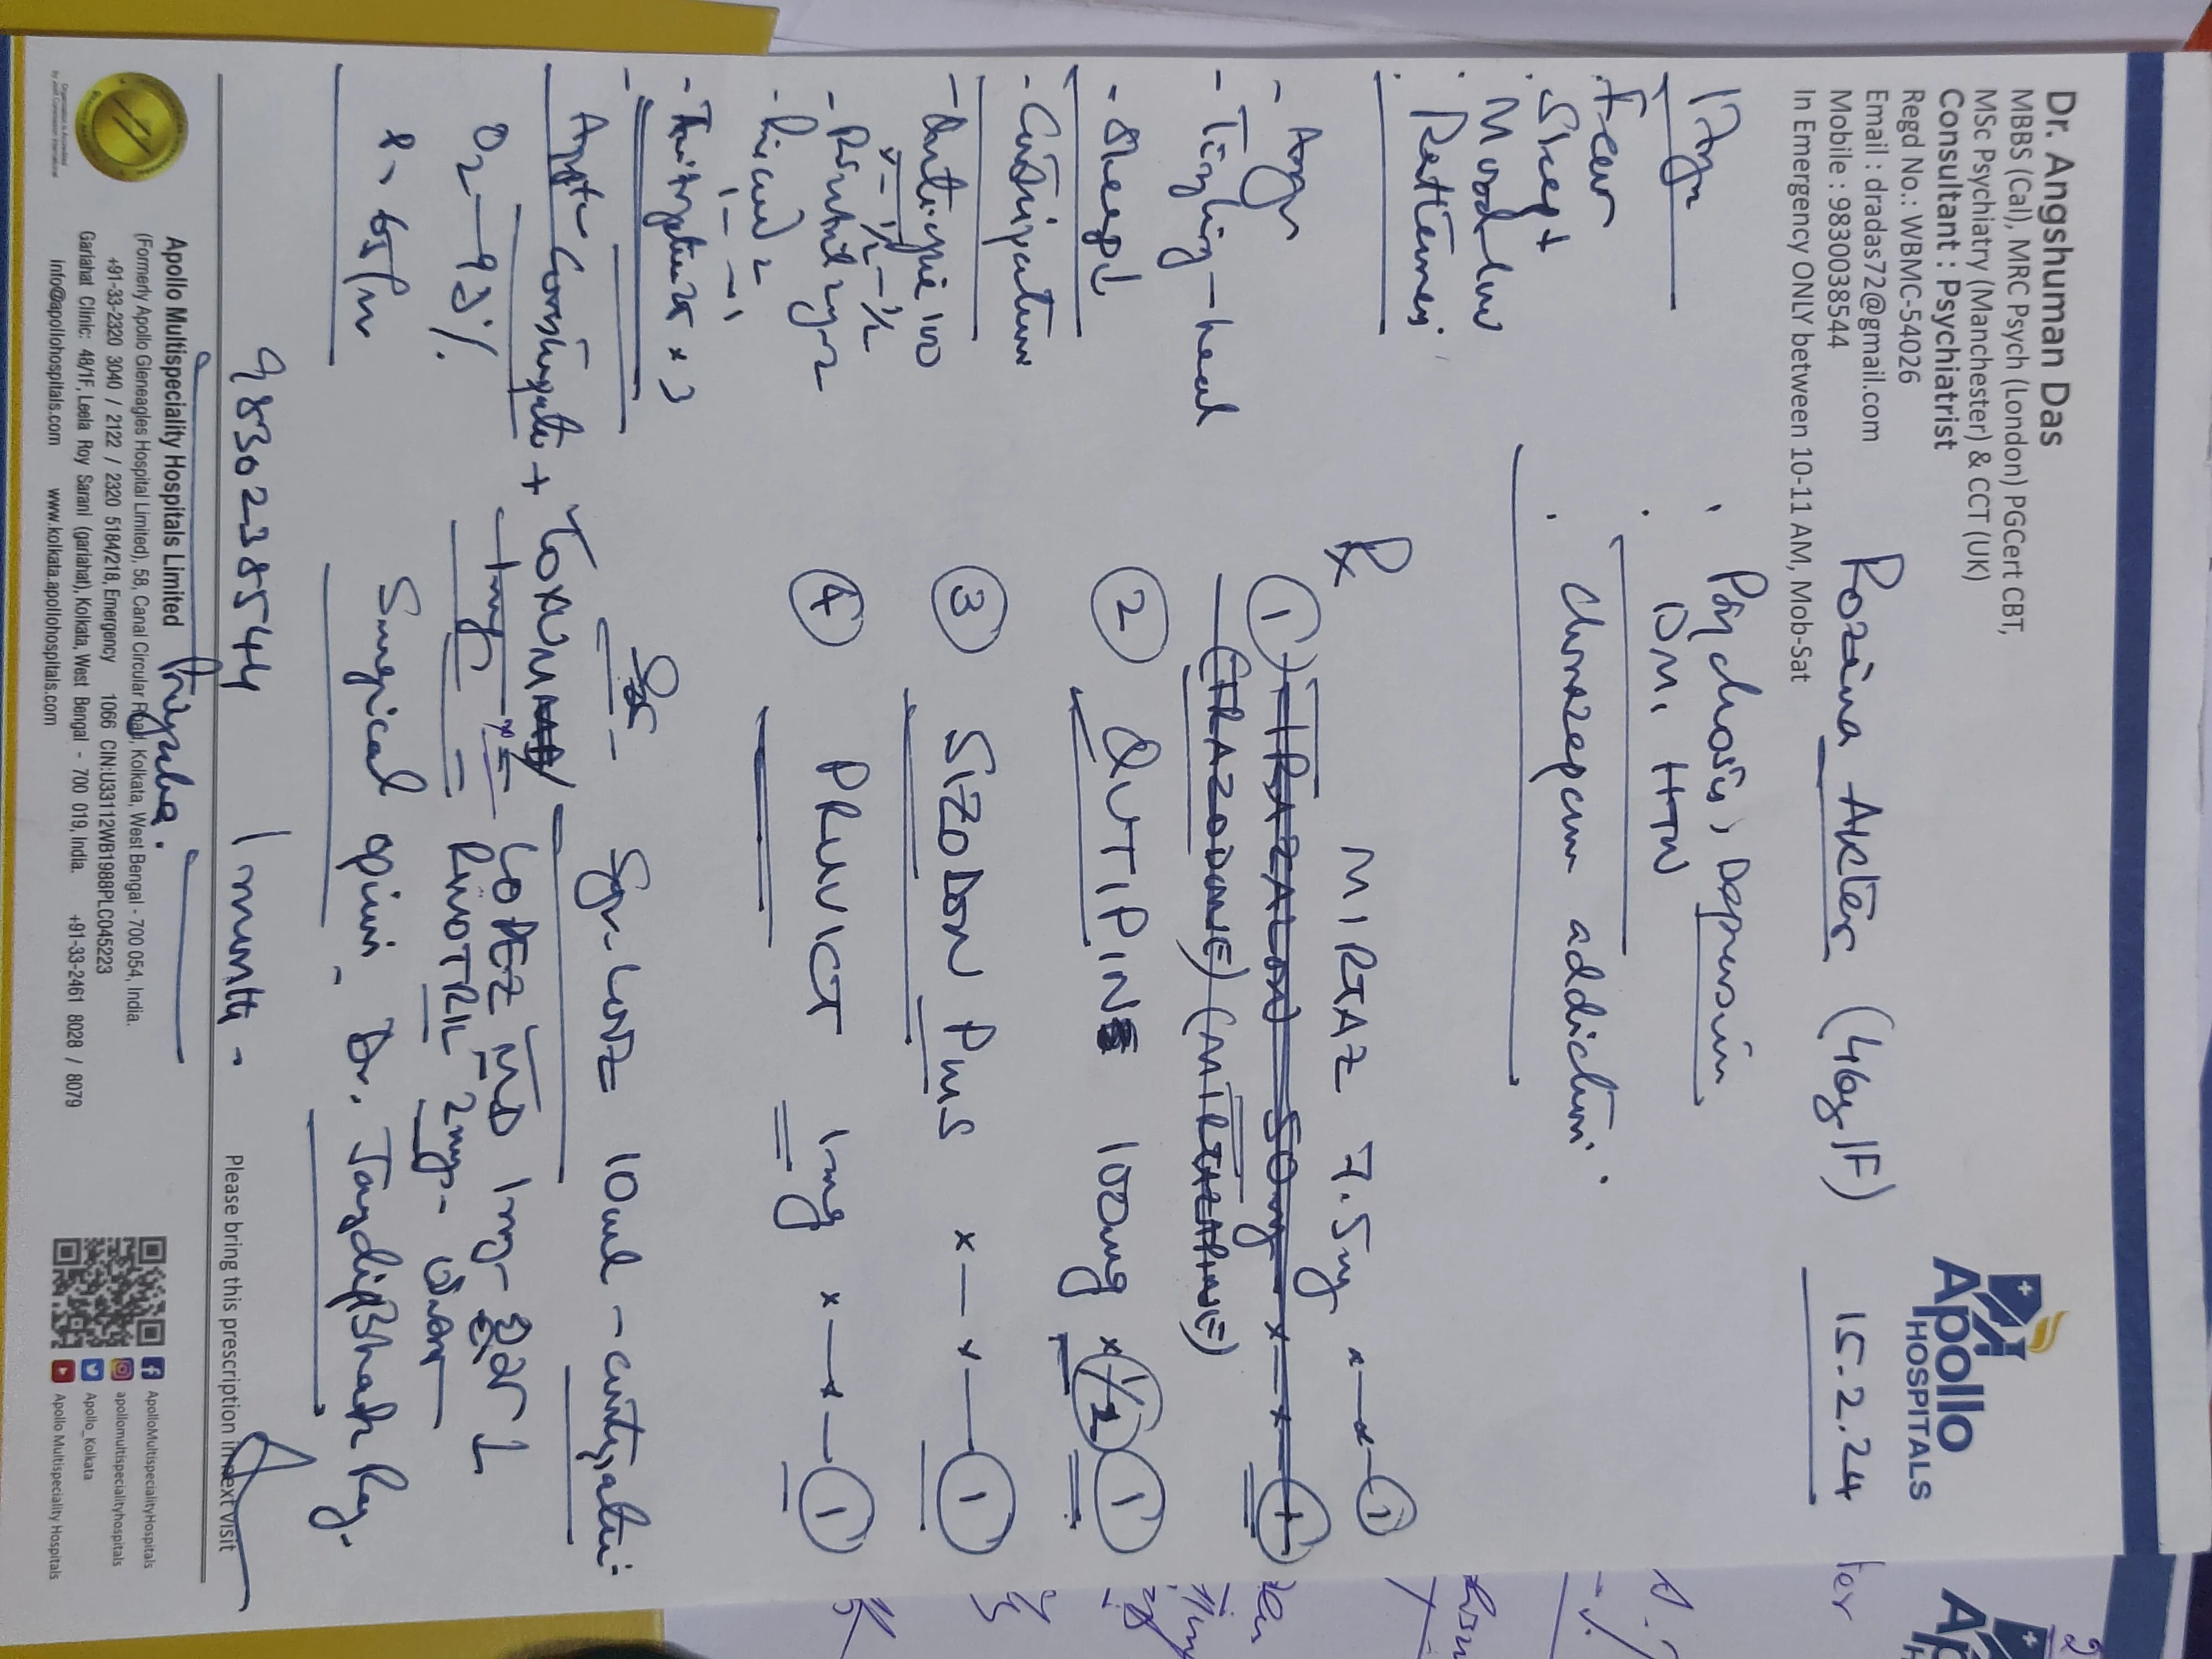 Dr. Angshuman Das
MBBS (Cal), MRC Psych (London) PGCert CBT,
MSc Psychiatry (Manchester) & CCT (UK)
Consultant : Psychiatrist
Regd No.: WBMC-54026
Email : dradas72@gmail.com
Mobile : 9830038544
In Emergency ONLY between 10-11 AM, Mob-Sat
Apollo
HOSPITALS
Rozina Akter (46y/F) 15.2.24
Psychosis, Depression
DM, HTN
Clonazepam addiction
Fear
Sleep +
Mood low
Restlessness
- Tingling - head
- Sleep ↓
- Constipation
- Qutipin 100
x - 1/2 - 1/2
1 - - 1
O2 - 93%
Rx
MIRTAZ 7.5mg x — x — 1
1) TRAZALON 50mg x — x — 1
(TRAZODONE) (MIRTAZAPINE)
2 QUTIPIN 100mg x 1/2 1
3 SIZODON PLUS x — x — 1
4 PRUVICT 1mg x — x — 1
Syr. Looz 10ml - constipation
LOPEZ MD 1mg
RIVOTRIL 2mg
Surgical opinion. Dr. Jaydip Bhadra Ray.
9830238544 1 month.
Please bring this prescription in next visit
Priyanka.
Apollo Multispeciality Hospitals Limited
(Formerly Apollo Gleneagles Hospital Limited), 58, Canal Circular Road, Kolkata, West Bengal - 700 054, India.
+91-33-2320 3040 / 2122 / 2320 5184/218, Emergency 1066 CIN:U33112WB1988PLC045223
Gariahat Clinic: 48/1F, Leela Roy Sarani (gariahat), Kolkata, West Bengal - 700 019, India. +91-33-2461 8028 / 8079
info@apollohospitals.com www.kolkata.apollohospitals.com
ApolloMultispecialityHospitals
apollomultispecialityhospitals
Apollo_Kolkata
Apollo Multispeciality Hospitals